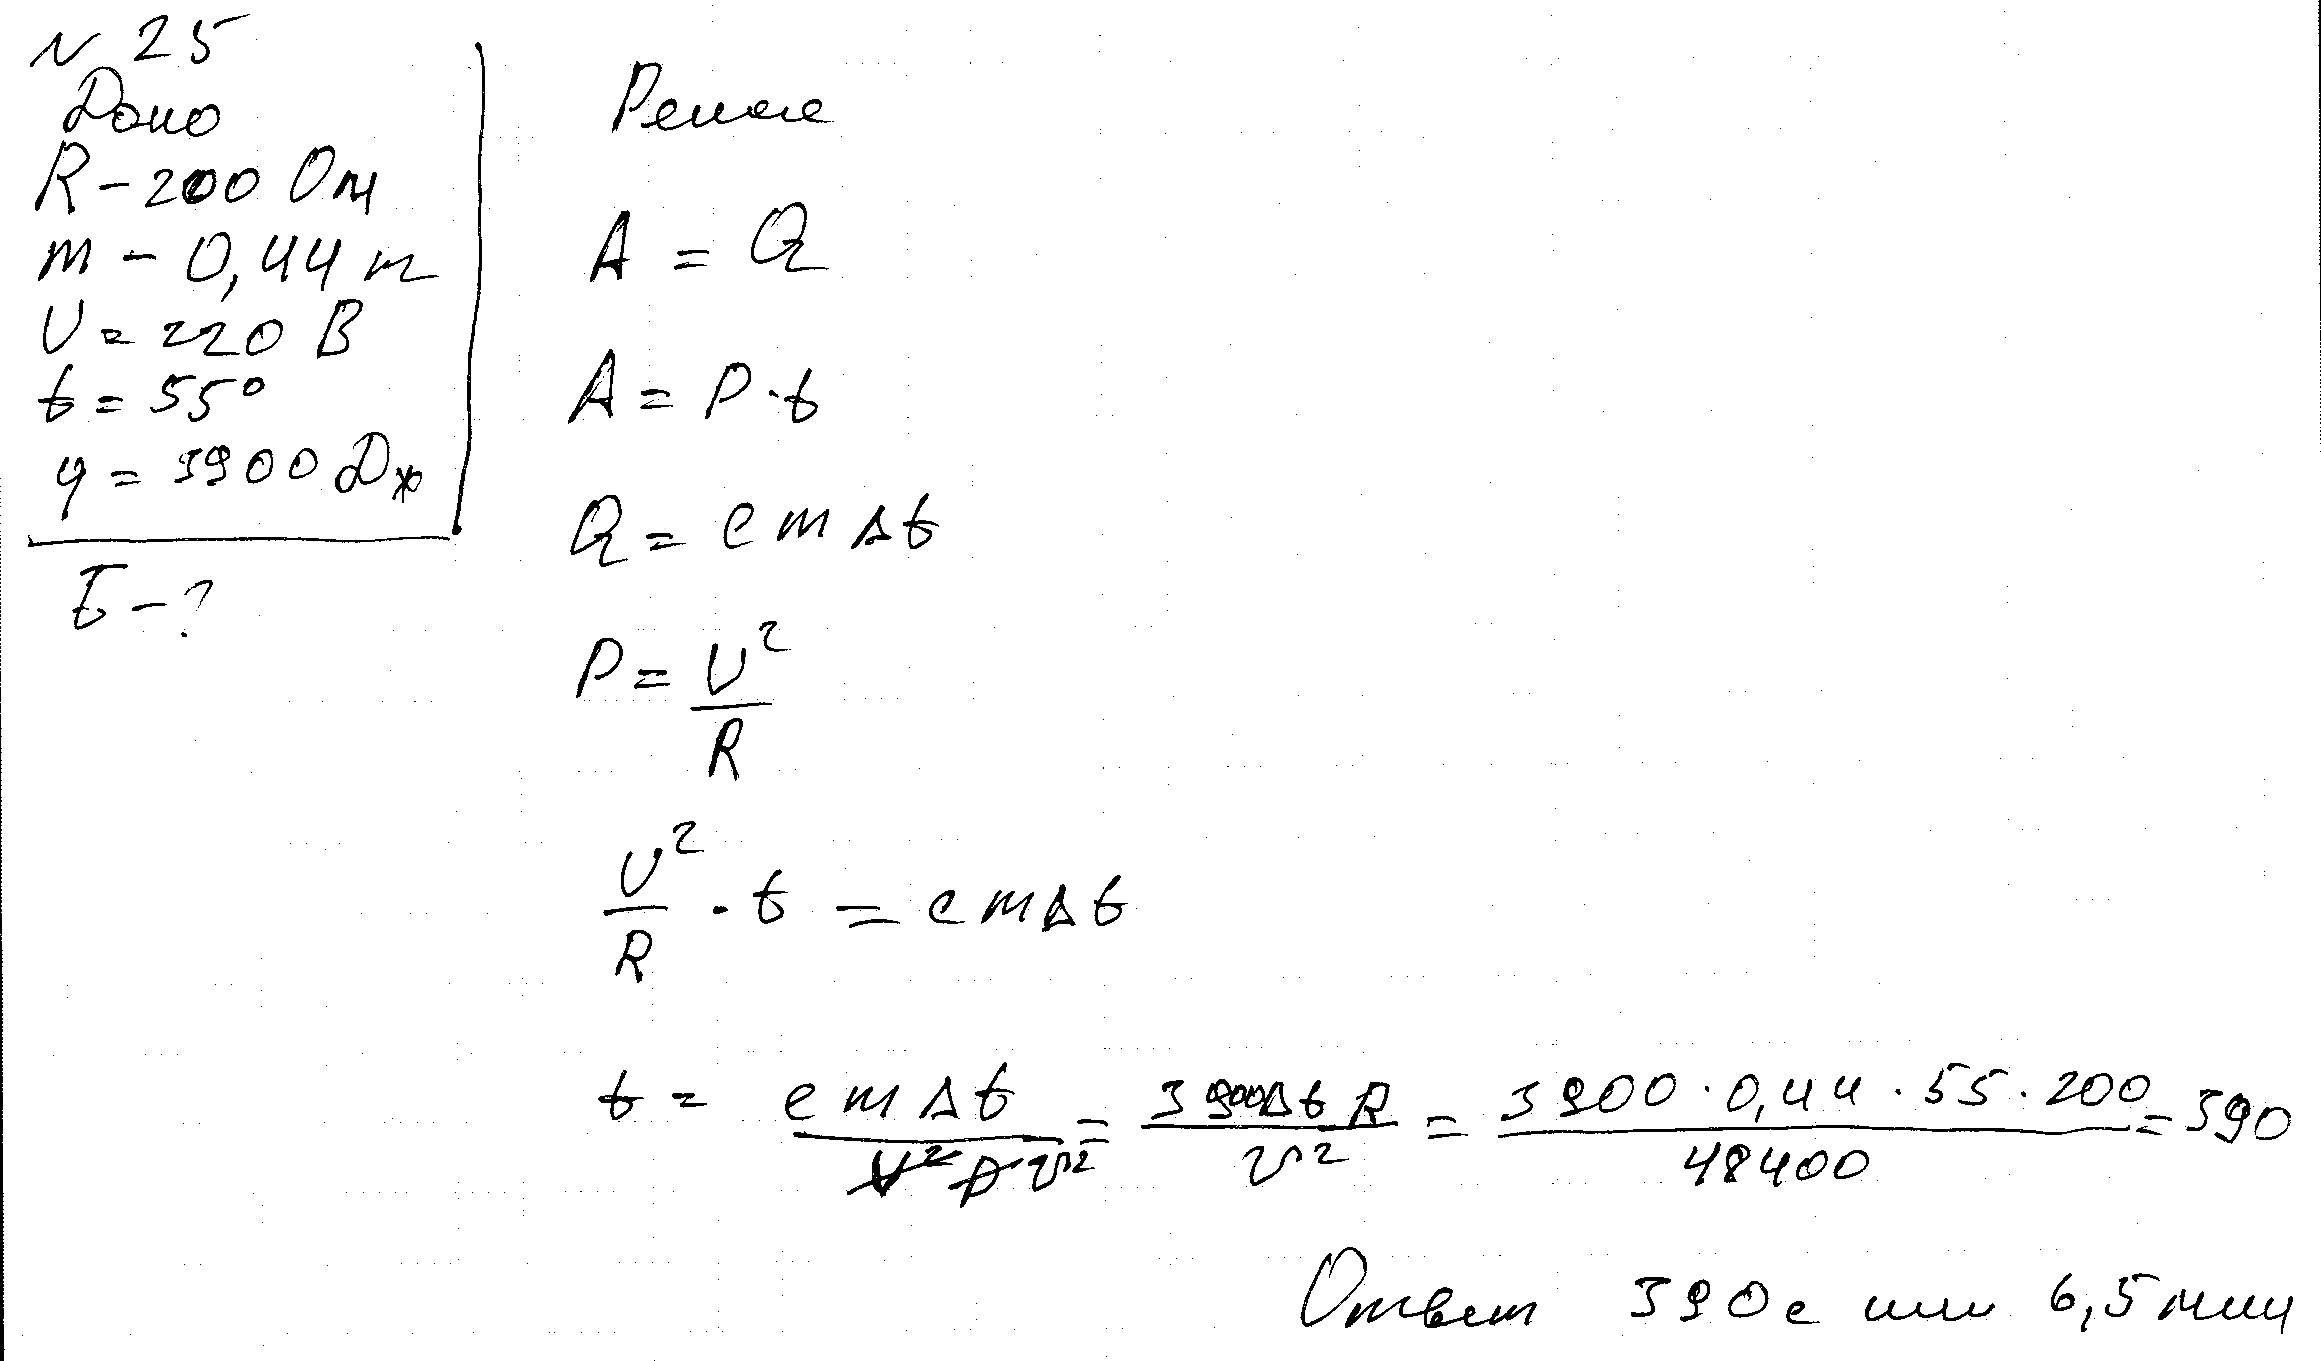 № 25
Дано
R - 200 Ом
m - 0,44 т
U = 220 В
t = 55°
q = 3900 Дж
t - ?
Решение
A = Q
A = P · t
Q = c m Δt
P = U² / R
U² / R · t = c m Δt
t = c m Δt / U² = 3900Δt R / U² = 3900 · 0,44 · 55 · 200 / 48400 = 390
Ответ 390 с или 6,5 мин